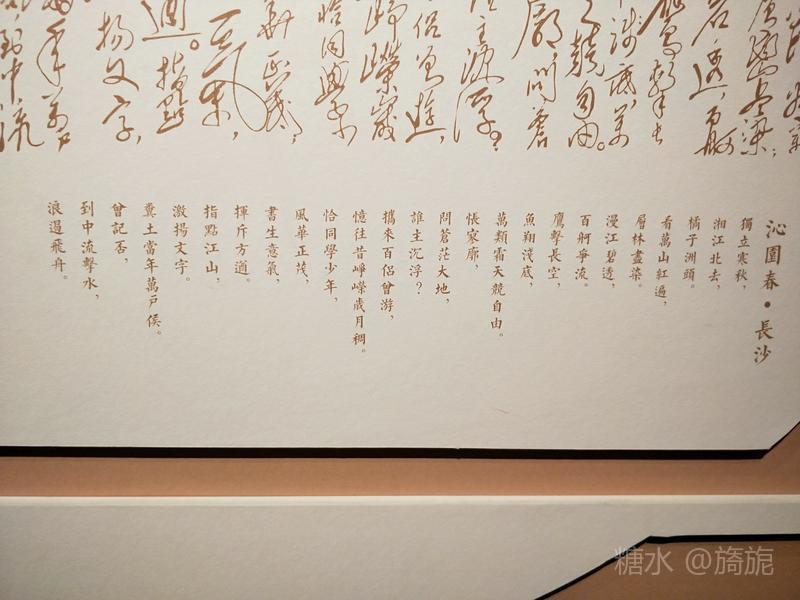 競自由。
廓，問蒼
主沉浮？
侶曾遊，
崢嶸歲
恰同學
遒。指點
揚文字，
到中流
沁園春・長沙
獨立寒秋，
湘江北去，
橘子洲頭。
看萬山紅遍，
層林盡染。
漫江碧透，
百舸爭流。
鷹擊長空，
魚翔淺底，
萬類霜天競自由。
悵寥廓，
問蒼茫大地，
誰主沉浮？
攜來百侶曾游，
憶往昔崢嶸歲月稠。
恰同學少年，
風華正茂，
書生意氣，
揮斥方遒。
指點江山，
激揚文字。
糞土當年萬戶侯。
曾記否，
到中流擊水，
浪遏飛舟。
糖水 @旖旎